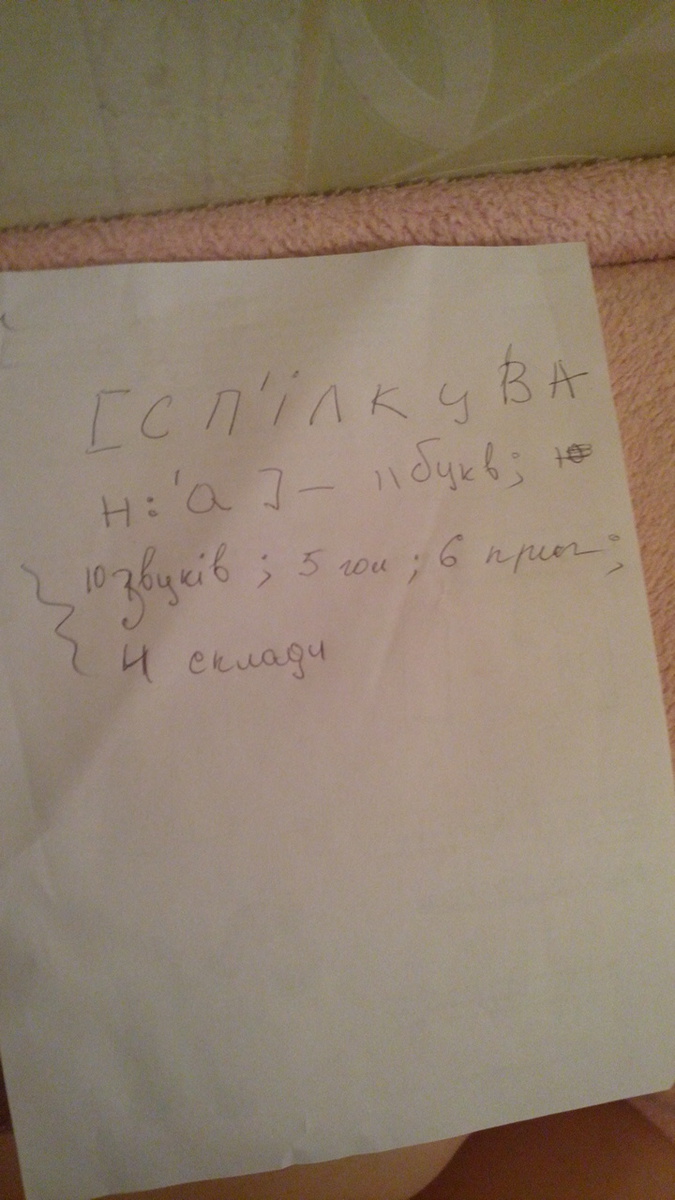 [С П'і Л К У В А
Н:'а] — 11 букв;
10 звуків; 5 гол; 6 приг;
4 склади